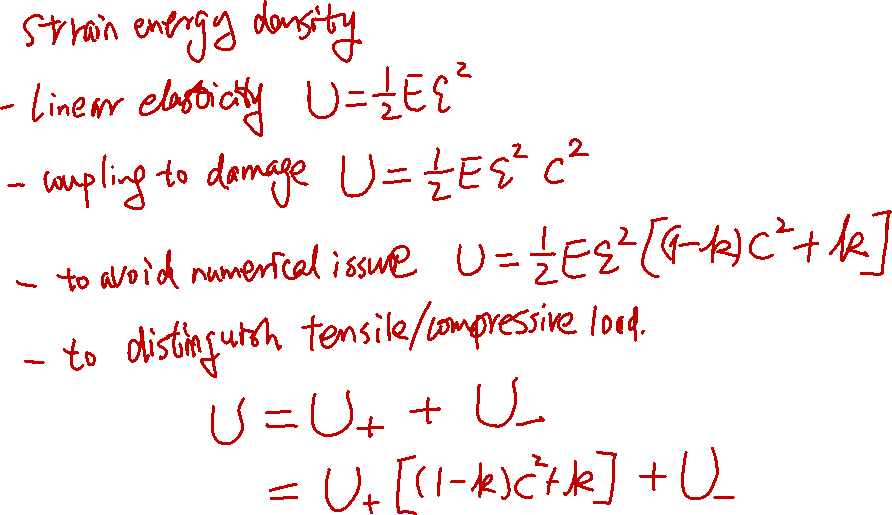 strain energy density
- linear elasticity U = 1/2 Eε²
- coupling to damage U = 1/2 Eε² c²
- to avoid numerical issue U = 1/2 Eε² [(1-k)c² + k]
- to distinguish tensile/compressive load.
U = U₊ + U₋
= U₊ [(1-k)c² + k] + U₋